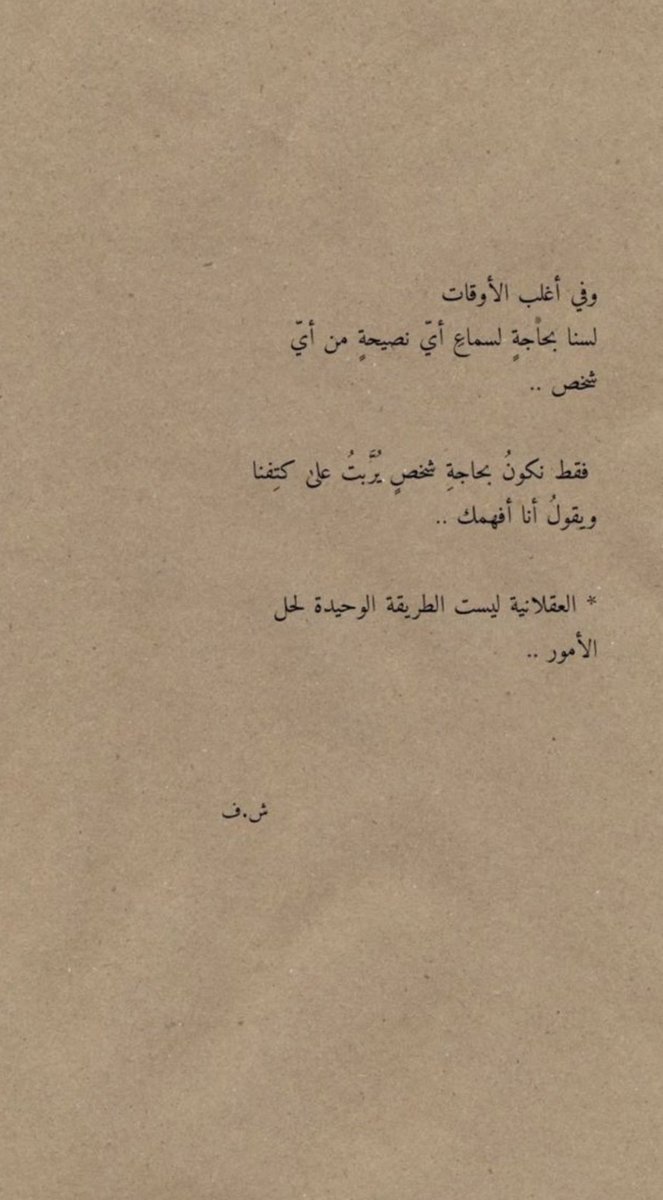 وفي أغلب الأوقات
لسنا بحاْجةٍ لسماعِ أيّ نصيحةٍ من أيّ
شخص ..
فقط نكونُ بحاجةِ شخصٍ يُرَّبتُ على كتِفنا
ويقولُ أنا أفهمك ..
* العقلانية ليست الطريقة الوحيدة لحل
الأمور ..
ش.ف